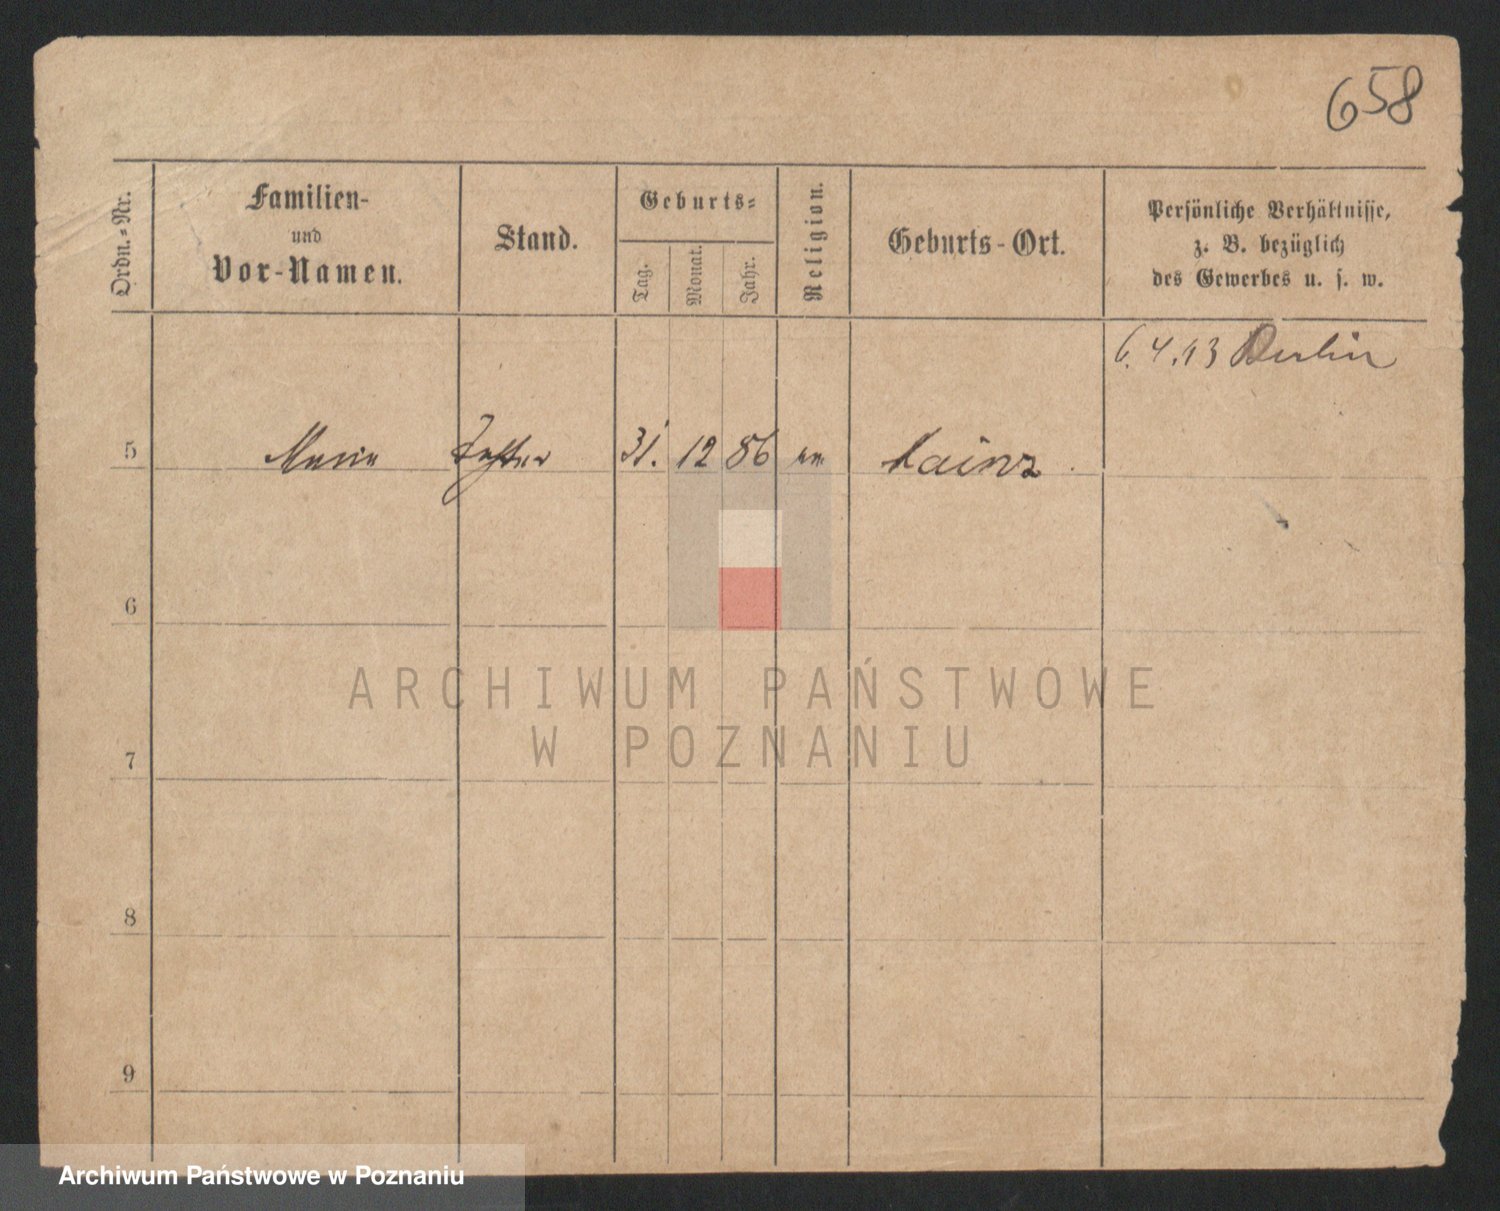 658
Ordn.=Nr.
Familien-
und
Vor-Namen.
Stand.
Geburts=
Tag.
Monat.
Jahr.
Religion.
Geburts-Ort.
Persönliche Verhältnisse,
z. B. bezüglich
des Gewerbes u. s. w.
6.4.13 Berlin
5 Marie Tochter 31. 12 86 ev. Mainz
6
ARCHIWUM PAŃSTWOWE
W POZNANIU
7
8
9
Archiwum Państwowe w Poznaniu